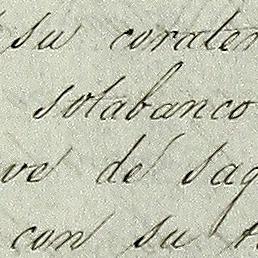 su corater
sotabanco
ve de saq
con su